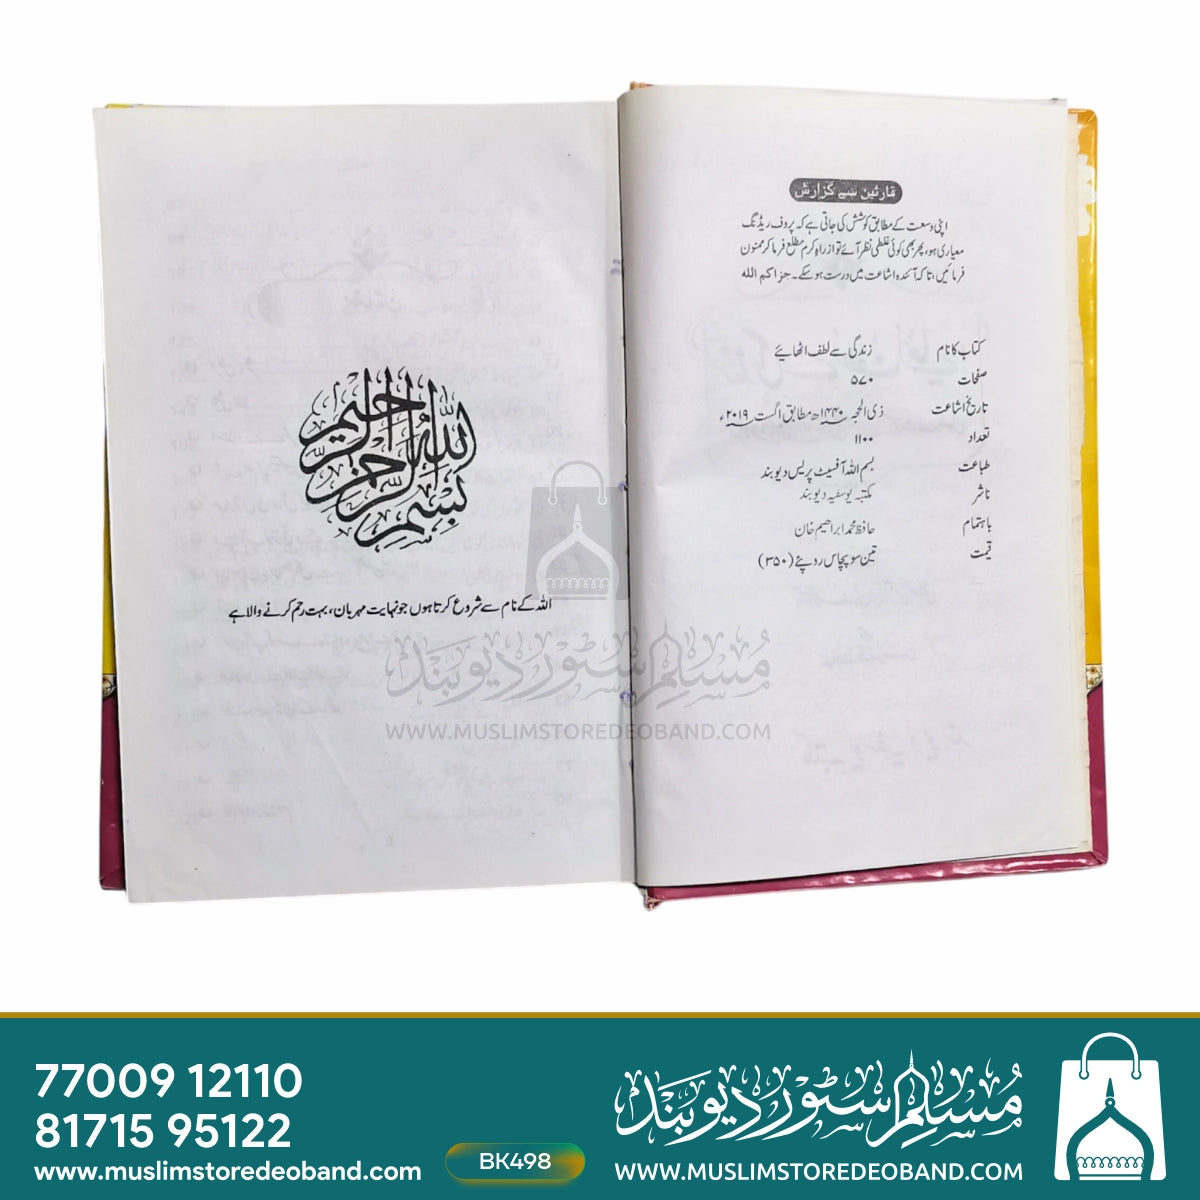 قارئین سے گزارش
اپنی وسعت کے مطابق کوشش کی جاتی ہے کہ پروف ریڈنگ
معیاری ہو، پھر بھی کوئی غلطی نظر آئے تو از راہِ کرم مطلع فرما کر ممنون
فرمائیں، تاکہ آئندہ اشاعت میں درست ہو سکے۔ جزاکم اللہ
کتاب کا نام زندگی سے لطف اٹھائیے
صفحات ۵۷۰
تاریخ اشاعت ذی الحجہ ۱۴۴۰ھ مطابق اگست ۲۰۱۹ء
تعداد ۱۱۰۰
طباعت بسم اللہ آفسیٹ پریس دیوبند
ناشر مکتبہ یوسفیہ دیوبند
باہتمام حافظ محمد ابراہیم خان
قیمت تین سو پچاس روپئے (۳۵۰)
بسم اللہ الرحمن الرحیم
اللہ کے نام سے شروع کرتا ہوں جو نہایت مہربان، بہت رحم کرنے والا ہے
مسلم سٹور دیوبند
WWW.MUSLIMSTOREDEOBAND.COM
77009 12110
81715 95122
www.muslimstoredeoband.com
BK498
مسلم سٹور دیوبند
WWW.MUSLIMSTOREDEOBAND.COM